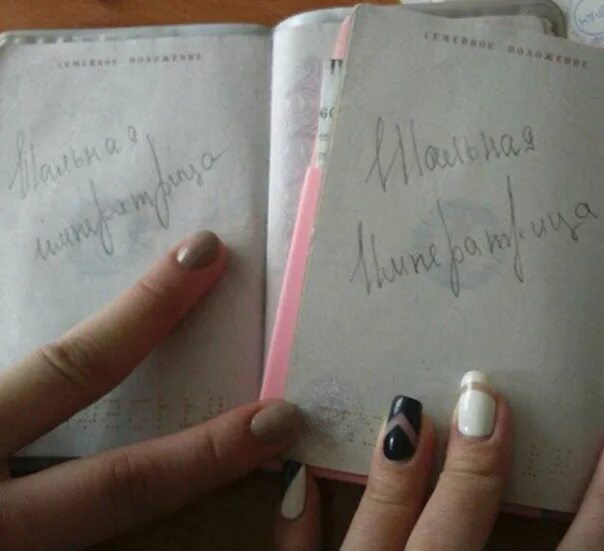 СЕМЕЙНОЕ ПОЛОЖЕНИЕ
Шальная
императрица
60
СЕМЕЙНОЕ ПОЛОЖЕНИЕ
Шальная
Императрица